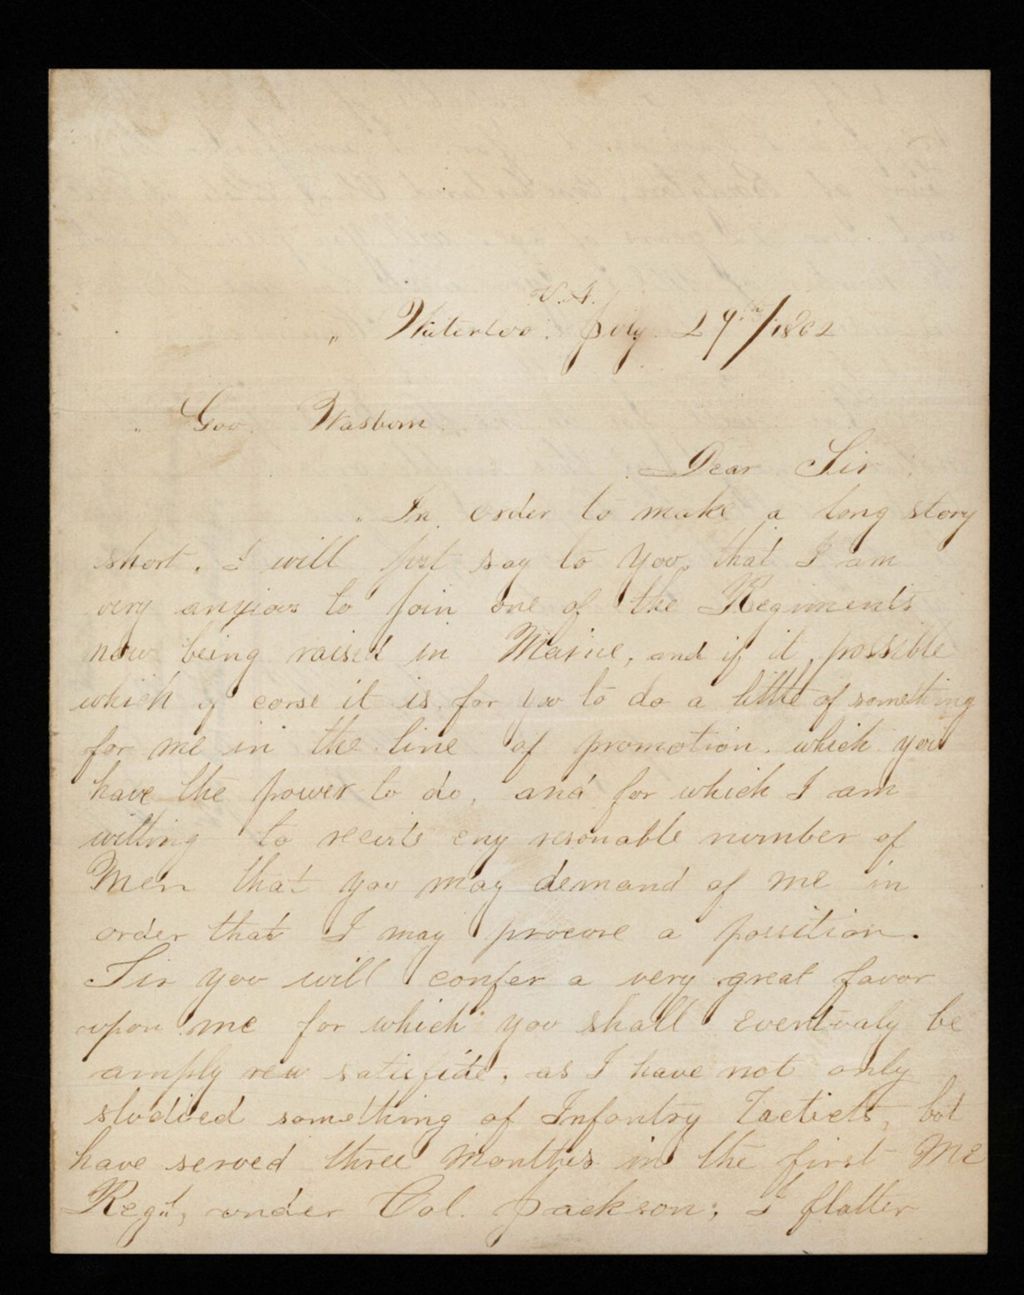 Waterloo. S.A. July 29th/1862
Gov. Wasburn
Dear Sir
In order to make a long story
short. I will just say to you that I am
very anxious to join one of the Regiments
now being raised in Marine, and if it possible
which of corse it is for you to do a little of something
for me in the line of promotion. which you
have the power to do, and for which I am
willing to recirts eny resonable number of
Men that you may demand of me in
order that I may procure a possition.
Sir you will confer a very great favor
upon me for which you shall eventualy be
amply rew satisfide, as I have not only
studied something of Infantry Tacticts, but
have served three Months in the first ME
Regt, under Col. Jackson; I flatter